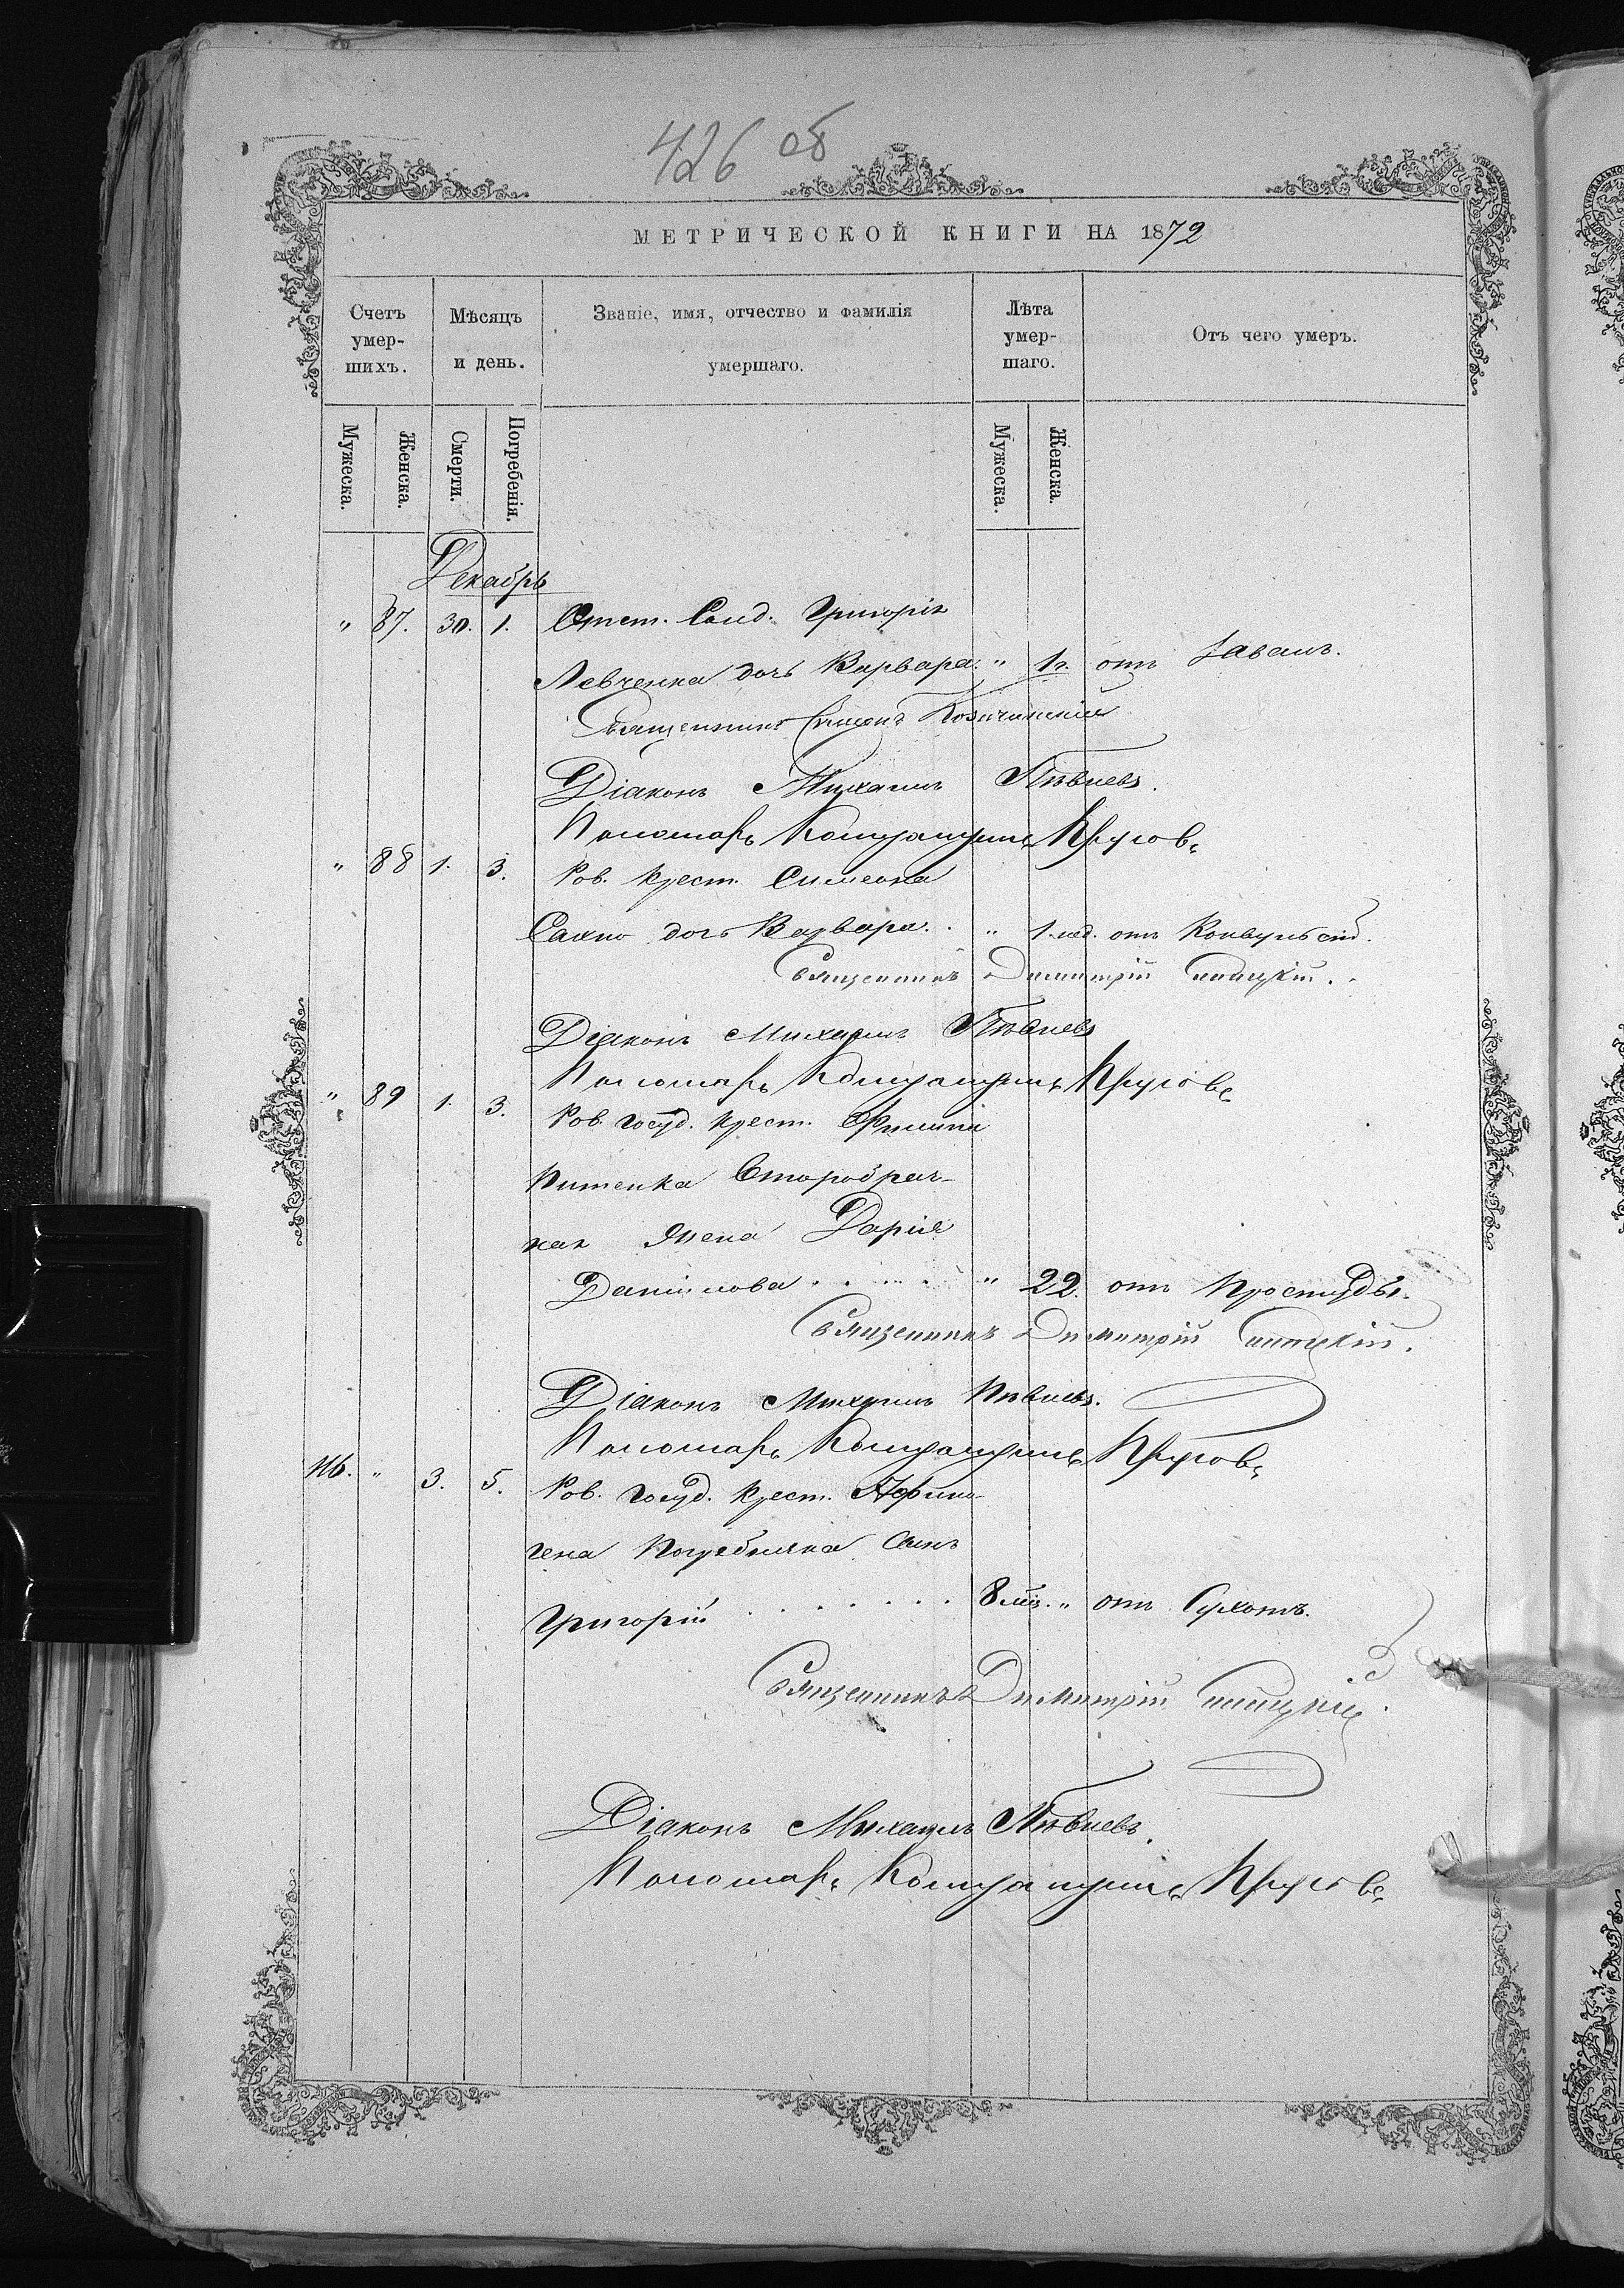 426 об
МЕТРИЧЕСКОЙ КНИГИ НА 1872
Счетъ умер- шихъ.
Мѣсяцъ и день.
Званіе, имя, отчество и фамилія умершаго.
Лѣта умер- шаго.
Отъ чего умеръ.
Мужеска. Женска. Смерти. Погребенія. Мужеска. Женска.
Декабрь
" 87. 30. 1. Отст. Солд. Григорія
Левченка дочь Варвара. " 1 г. отъ
Священникъ
Діаконъ Михаилъ Пѣвневъ.
Пономарь Крутовъ
" 88 1. 3. Ров. крест. Симеона
Сахно дочь Варвара. . " 1. нед. отъ Конвульсій.
Священникъ Димитрій
Діаконъ Михаилъ Пѣвневъ
Пономарь Крутовъ
" 89 1. 3. Ров. Госуд. крест. Филипа
Питенка Старобрач-
ная жена Дарія
Данилова . . . . . " 22. отъ Простуды.
Священникъ Димитрій
Діаконъ Михаилъ Пѣвневъ.
Пономарь Крутовъ
116. " 3. 5. Ров. Госуд. Крест. Афино-
гена Погребняка Сынъ
Григорій . . . . . . . 8 мѣ. " отъ Сухотъ.
Священникъ Димитрій
Діаконъ Михаилъ Пѣвневъ.
Пономарь Крутовъ